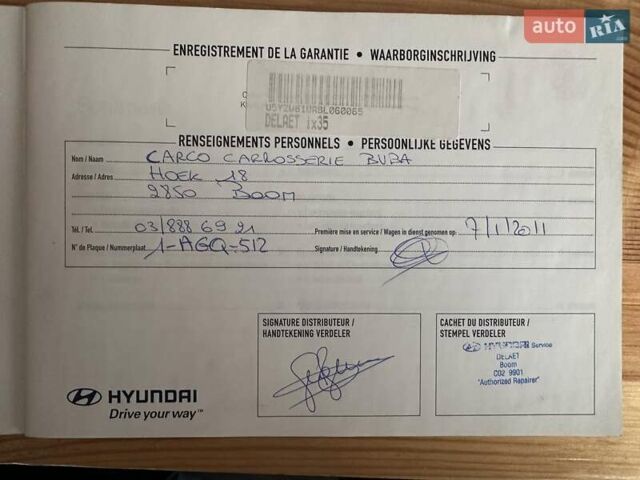 auto RIA
.com
ENREGISTREMENT DE LA GARANTIE • WAARBORGINSCHRIJVING
DELAET ix35
RENSEIGNEMENTS PERSONNELS • PERSOONLIJKE GEGEVENS
Nom / Naam CARCO CARROSSERIE BVBA
Adresse / Adres HOEK 18
2850 BOOM
Tél. / Tel. 03/888 69 21 Première mise en service / Wagen in dienst genomen op: 7/1/2011
N° de Plaque / Nummerplaat 1-AGQ-512 Signature / Handtekening
SIGNATURE DISTRIBUTEUR /
HANDTEKENING VERDELER
CACHET DU DISTRIBUTEUR /
STEMPEL VERDELER
HYUNDAI Service
DELAET
Boom
C02 9901
"Authorized Repairer"
HYUNDAI
Drive your way™